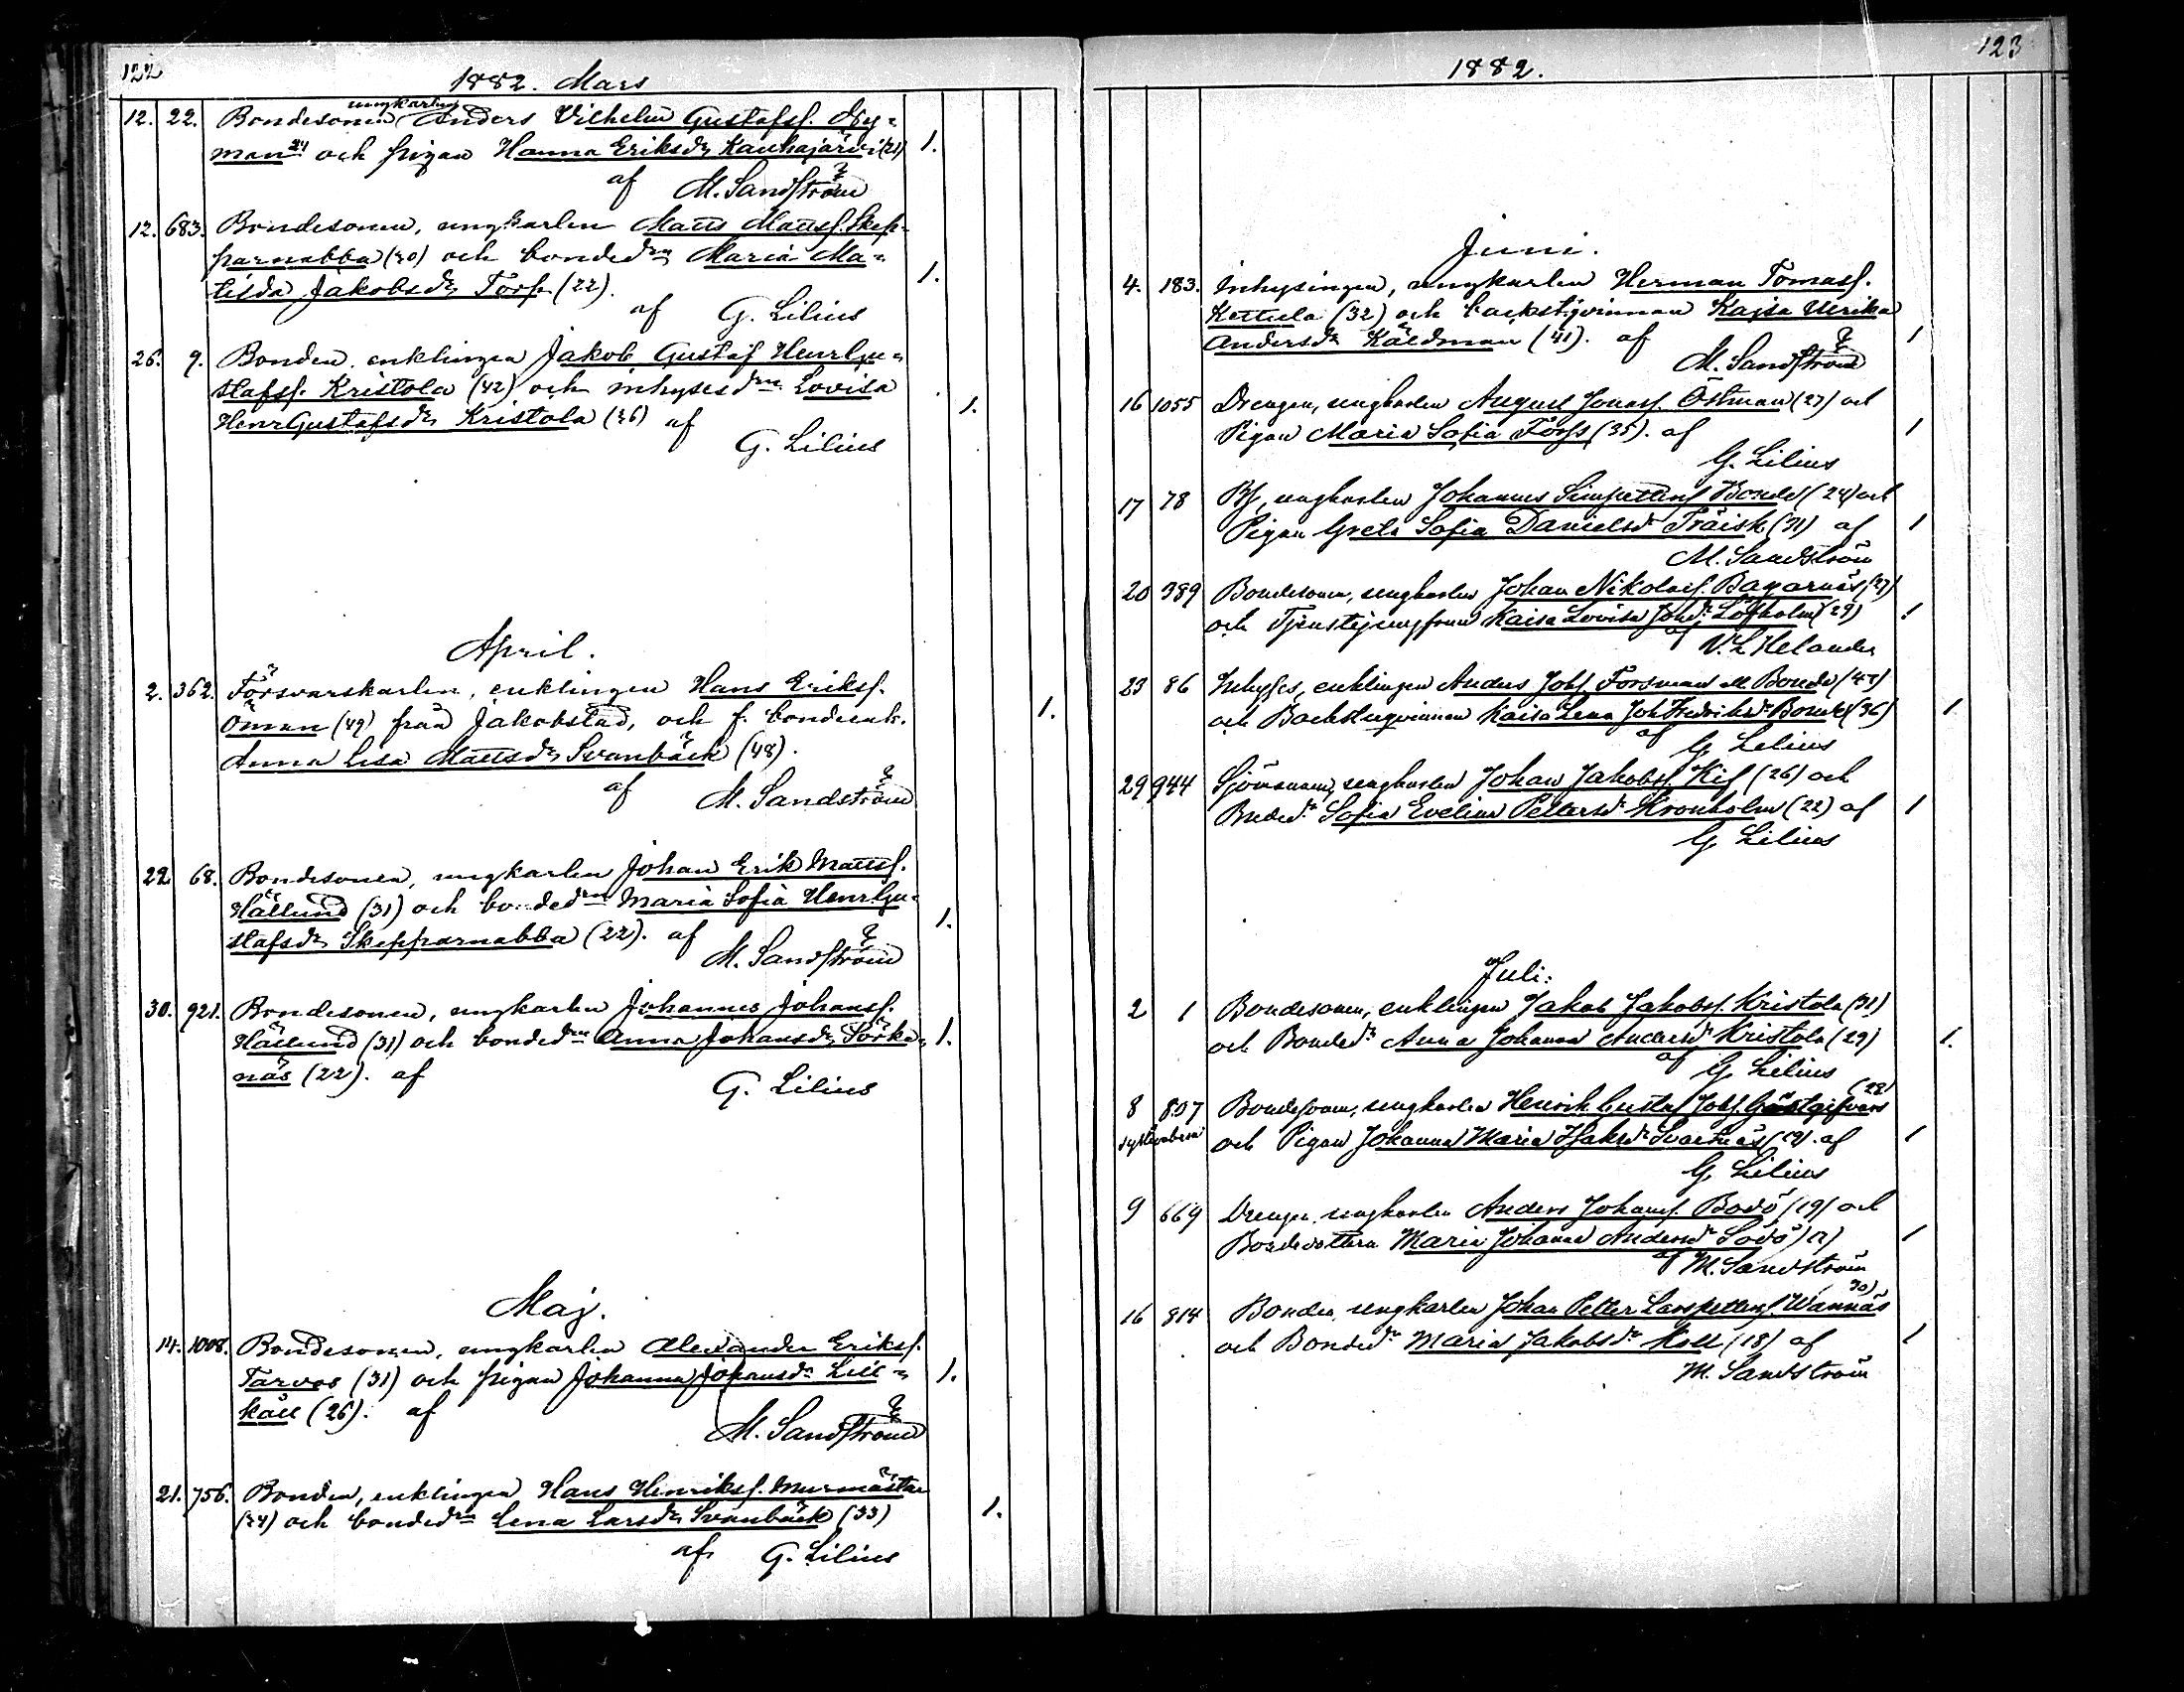 122
1882. Mars
12. 22. Bondesonen ungkarlen Anders Vilhelm Gustafss. Ny=
man 24 och pigan Hanna Eriksdr Kauhajärvi (21) 1.
af M. Sandström
12. 683. Bondesonen, ungkarlen Matts Mattss. Skep=
parnabba (20) och bondedrn Maria Ma=
tilda Jakobsdr Torp (22). 1.
af G. Lilius
26. 9. Bonden, enklingen Jakob Gustaf HenrGu=
stafss. Kristola (42) och inhysesdrn Lovisa
HenrGustafsdr Kristola (26) af 1.
G. Lilius
April.
2. 362. Försvarskarlen, enklingen Hans Erikss.
Öman (49) från Jakobstad, och f. bondeenk. 1.
Anna Lisa Mattsdr Svanbäck (48).
af M. Sandström
22 68. Bondesonen, ungkarlen Johan Erik Mattss.
Hällund (31) och bondedrn Maria Sofia HenrGu=
stafsdr Skepparnabba (22). af 1.
M. Sandström
30. 921. Bondesonen, ungkarlen Johannes Johanss.
Hällund (31) och bondedrn Anna Johansdr Sörka= 1.
näs (22). af
G. Lilius
Maj.
14. 1008. Bondesonen, ungkarlen Alexander Erikss.
Tarvos (31) och pigan Johanna Johansdr Lill= 1.
käll (26). af
M. Sandström
21. 756. Bonden, enklingen Hans Henrikss. Murmästar
(24) och bondedrn Lena Larsdr Svanbäck (33) 1.
af G. Lilius
123
1882.
Juni.
4. 183. Inhysingen, ungkarlen Herman Tomass.
Kettula (32) och backstqvinnan Kajsa Ulrika
Andersdr Källman (41). af 1
M. Sandström
16 1055 Drengen, ungkarlen August Jonass. Östman (27) och
Pigan Maria Sofia Forss (35). af 1
G. Lilius
17 78 Bs, ungkarlen Johannes Simpetterss Bonde (24) och
Pigan Greta Sofia Danielsdr Träisk (31) af 1
M. Sandström
20 389 Bondesonen, ungkarlen Johan Nikolaiss. Bagarnäs (27)
och Tjenstejungfrun Kaisa Lovisa Johdr Löfholm (29) 1
af V. L. Helander
23 86 Inhyses, enklingen Anders Johss Forsman ell. Bonde (47)
och Backstuqvinnan Kaisa Lena JohFredriksdr Bonde (36) 1
af G. Lilius
29 944 Sjömannen, ungkarlen Johan Jakobss. Kif (26) och
Bndedr Sofia Evelina Pettersdr Kronholm (22) af 1
G. Lilius
Juli.
2 1 Bondesonen, enklingen Jakob Jakobss. Kristola (31)
och Bondedr Anna Johanna Andersdr Kristola (29) 1.
af G. Lilius
8 807 Bondesonen, ungkarlen Henrik Gustaf Johss. Gästgifvars (28)
och Pigan Johanna Maria Isaksdr Svartnäs (19). af 1
G. Lilius
9 669 Drengen, ungkarlen Anders Johanss. Bodö (19) och
Bondedottern Maria Johanna Andersdr Sodö 1
af M. Sandström
16 814 Bonden, ungkarlen Johan Petter Larspetterss. Wannäs (20)
och Bondedr Maria Jakobsdr Koll (18) af 1
M. Sandström